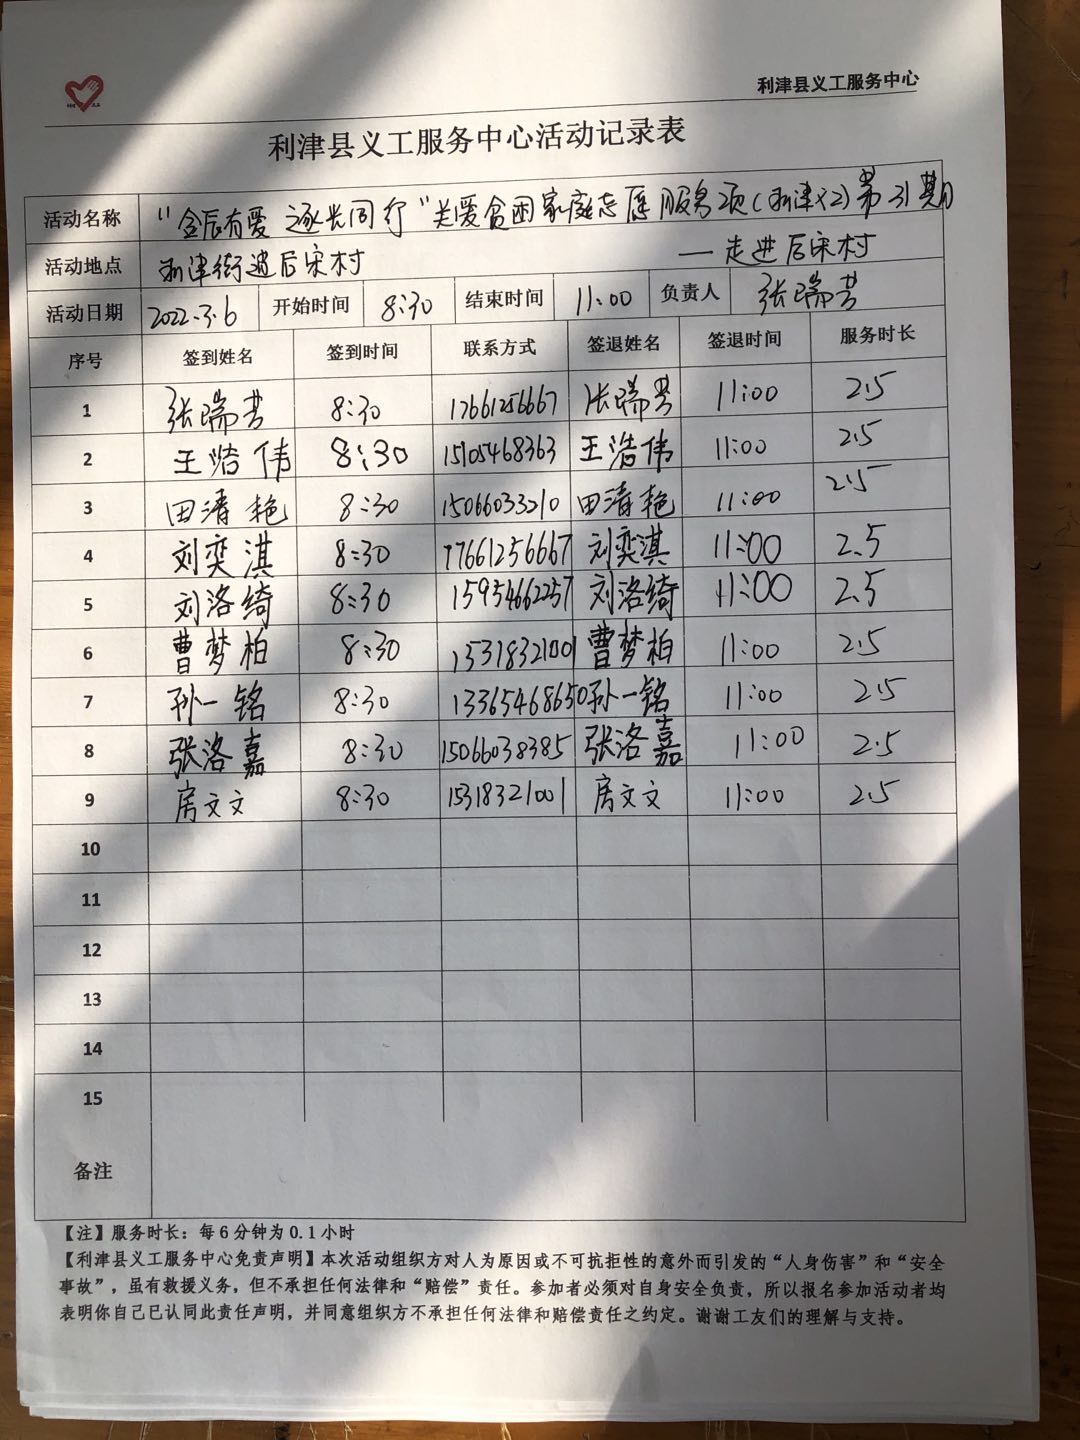 利津县义工服务中心
利津县义工服务中心活动记录表
活动名称 “金辰有爱 逐长同行”关爱贫困家庭志愿服务项(利津义工)第31期
活动地点 利津街道后宋村 —走进后宋村
活动日期 2022.3.6 开始时间 8:30 结束时间 11:00 负责人 张瑞芳
序号 签到姓名 签到时间 联系方式 签退姓名 签退时间 服务时长
1 张瑞芳 8:30 17661256667 张瑞芳 11:00 2.5
2 王浩伟 8:30 15105468363 王浩伟 11:00 2.5
3 田清艳 8:30 15066033210 田清艳 11:00 2.5
4 刘奕淇 8:30 17661256667 刘奕淇 11:00 2.5
5 刘洛绮 8:30 15954662257 刘洛绮 11:00 2.5
6 曹梦柏 8:30 15318321001 曹梦柏 11:00 2.5
7 孙一铭 8:30 13365468650 孙一铭 11:00 2.5
8 张洛嘉 8:30 15066038385 张洛嘉 11:00 2.5
9 房文文 8:30 15318321001 房文文 11:00 2.5
10
11
12
13
14
15
备注
【注】服务时长：每6分钟为0.1小时
【利津县义工服务中心免责声明】本次活动组织方对人为原因或不可抗拒性的意外而引发的“人身伤害”和“安全
事故”，虽有救援义务，但不承担任何法律和“赔偿”责任。参加者必须对自身安全负责，所以报名参加活动者均
表明你自己已认同此责任声明，并同意组织方不承担任何法律和赔偿责任之约定。谢谢工友们的理解与支持。